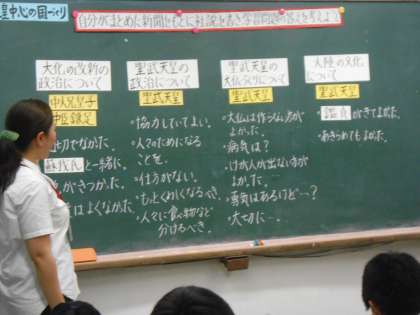 皇中心の国づくり
自分がまとめた新聞をもとに社説を書き学習問題の答えを考えよう
大化の改新の
政治について
中大兄皇子
中臣鎌足
せんでなかった。
蘇我氏と一緒に。
がきつかった。
はよくなかった。
聖武天皇の
政治について
聖武天皇
・協力していてよい。
・人々のためになる
ことを。
・仕方がない。
・もっとくわしくなるべき。
・人々に食べ物など
分けるべき。
聖武天皇の
大仏づくりについて
聖武天皇
・大仏は作らない方が
よかった。
・病気は？
・けが人が出ない方が
よかった。
・勇気はあるけど…？
・大切に…。
大陸の文化
について
聖武天皇
・鑑真ができてよかった。
・あきらめてもよかった。